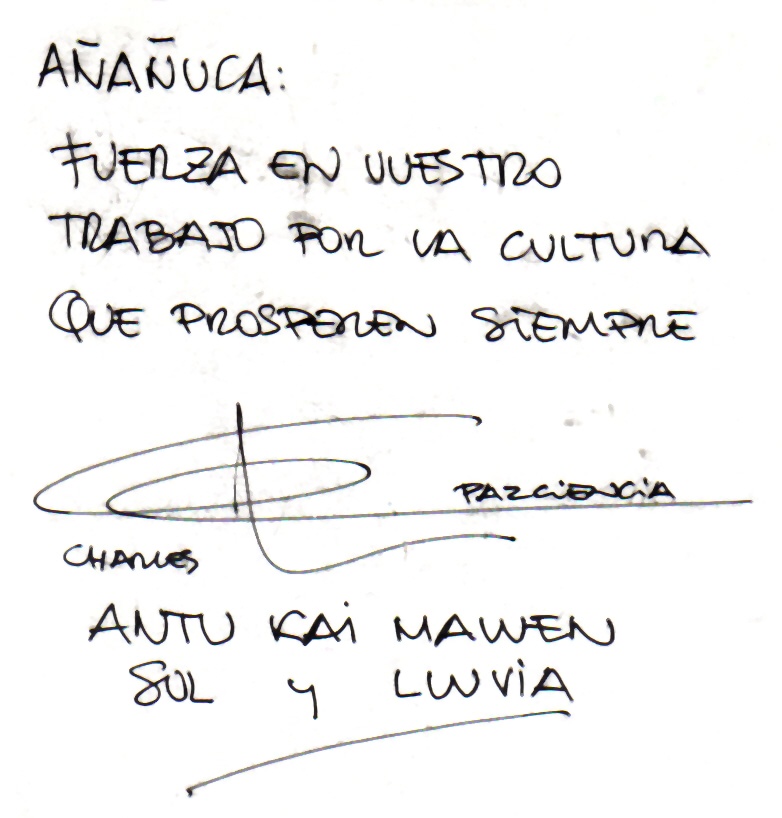 AÑAÑUCA:
FUERZA EN VUESTRO
TRABAJO POR LA CULTURA
QUE PROSPEREN SIEMPRE
PAZCIENCIA
CHARLES
ANTU KAI MAWEN
SOL y LLUVIA